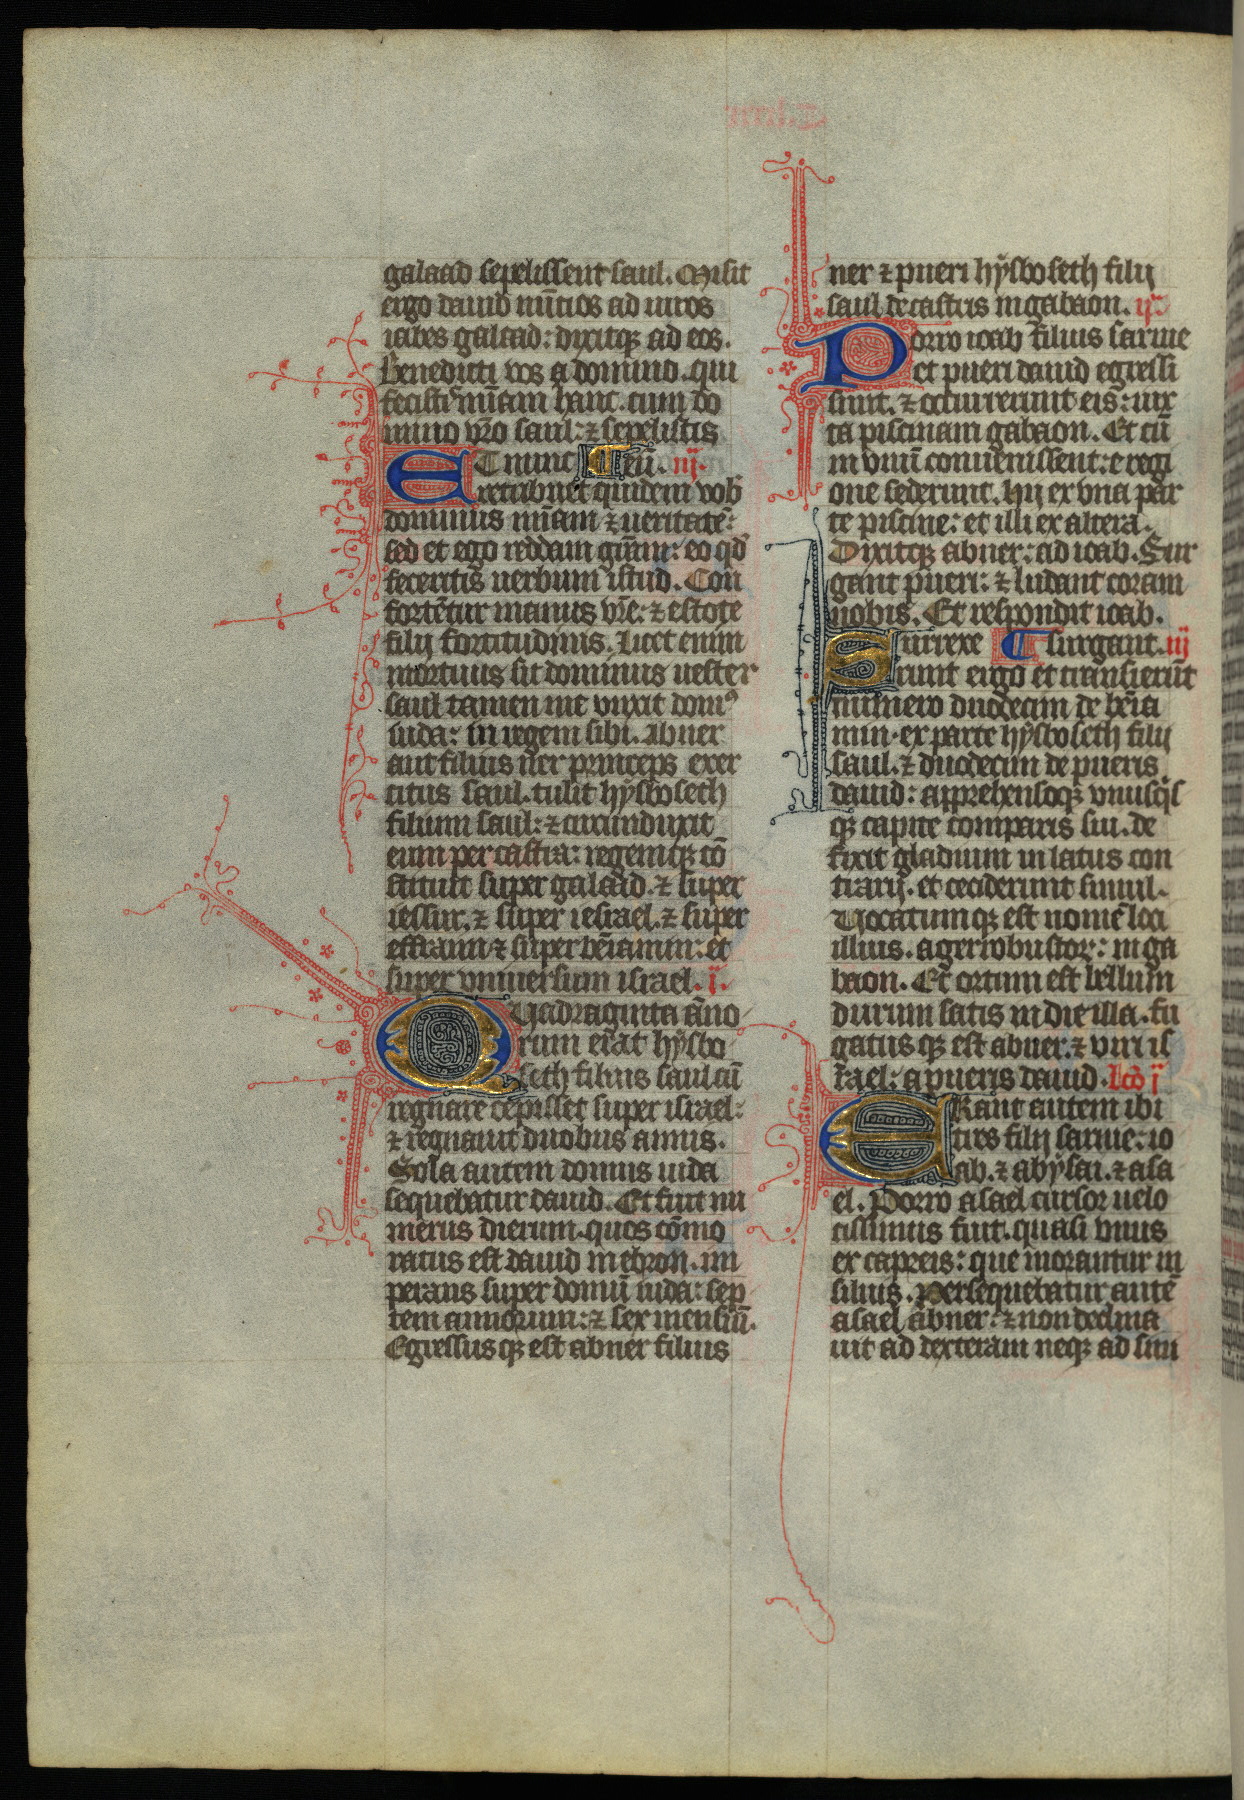 galaad sepelissent saul. Misit
ergo dauid nūtios ad uiros
iabes galaad: dixitqꝫ ad eos.
Benedicti vos a domino. qui
fecistis mīam hanc. cum do
mino vr̄o saul: ⁊ sepelistis
ET nunc ¶ eū. iij.
retribuet quidem vob̄
dominus mīam ⁊ ueritatē:
sed et ego reddam gr̄am: eo qd̄
feceritis uerbum istud. Con
fortētur manus vr̄e: ⁊ estote
filij fortitudinis. Licet enim
mortuus sit dominus uester
saul tamen me vnxit domꝰ
iuda: in regem sibi. Abner
aut filius ner princeps exer
citus saul. tulit hẏsboseth
filium saul: ⁊ circumduxit
eum per castra: regemqꝫ cō
stituit super galaad. ⁊ super
iessur. ⁊ super iesrael. ⁊ super
effraim ⁊ super beniamin: et
super vniuersum israel. i.
QUadraginta āno
rum erat hẏsbo
seth filius saul cū
regnare cepisset super israel:
⁊ regnauit duobus annis.
Sola autem domus iuda
sequebatur dauid. Et fuit nu
merus dierum. quos cōmo
ratus est dauid in ebron. im
perans super domū iuda: sep
tem annorum: ⁊ sex mensiū.
Egressus qꝫ est abner filius
ner ⁊ pueri hẏsboseth filij
saul de castris in gabaon. ij.
Porro ioab filius saruie
et pueri dauid egressi
sunt. ⁊ occurrerunt eis: iux
ta piscinam gabaon. Et cū
in vnū conuenissent: e regi
one sederunt. hij ex vna par
te piscine: et illi ex altera.
Dixitqꝫ abner: ad ioab. Sur
gant pueri: ⁊ ludant coram
nobis. Et respondit ioab.
Surrexe ¶ surgant. iij
runt ergo et transierūt
numero duodecim de bēia
min. ex parte hẏsboseth filij
saul. ⁊ duodecim de pueris
dauid: apprehensoqꝫ vnusqͥs
qꝫ capite comparis sui. de
fixit gladium in latus con
trarij. et ceciderunt simul.
Uocatumqꝫ est nomē loci
illius. ager robustorꝝ: in ga
baon. Et ortum est bellum
durum satis in die illa. fu
gatus qꝫ est abner. ⁊ viri is
rael: a pueris dauid. Lc̄o i
ERant autem ibi
tres filij saruie: io
ab. ⁊ abẏsai. ⁊ asa
el. Porro asael cursor uelo
cissimus fuit. quasi vnus
ex capreis: que morantur in
siluis. Persequebatur autē
asael abner: ⁊ non declina
uit ad dexteram neqꝫ ad sini